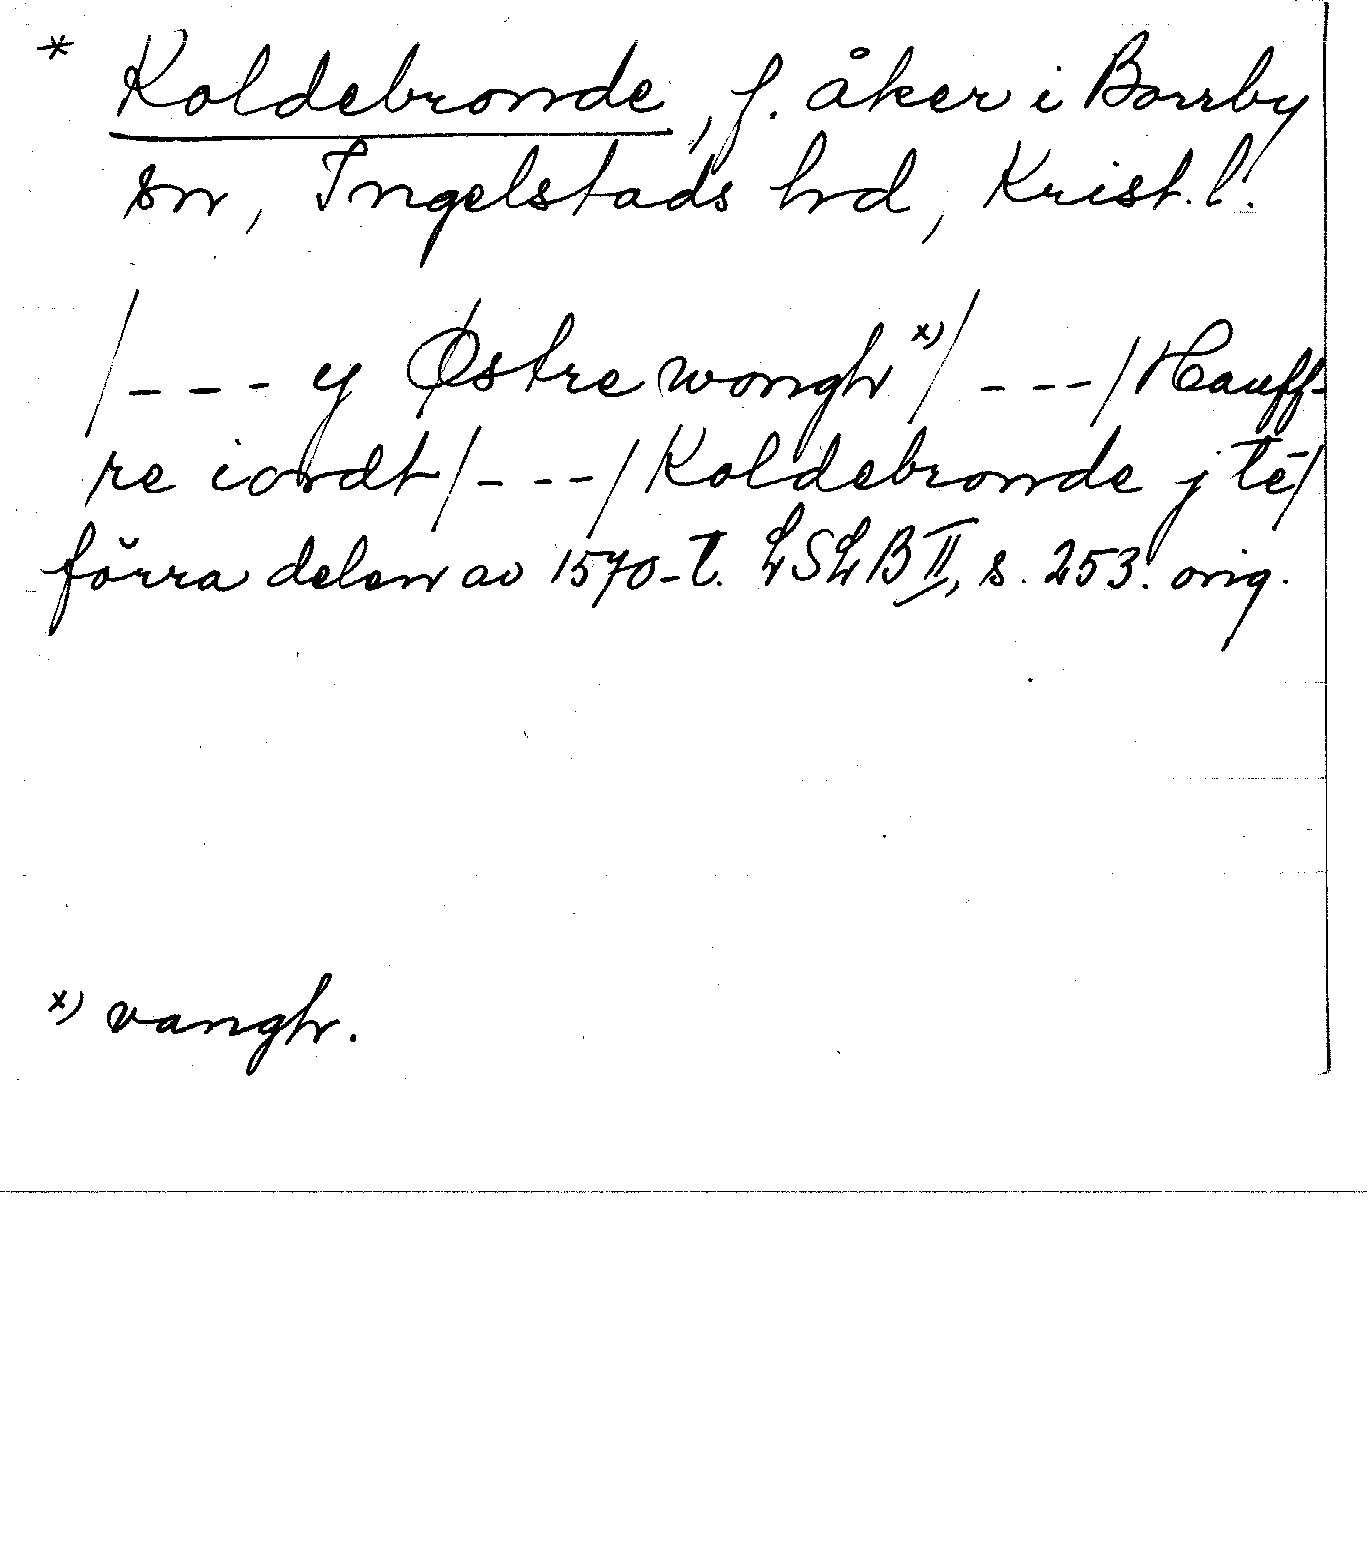 * Koldebronde, f. åker i Borrby
sn, Ingelstads hd, Krist. l.
/--- y Østre wongh x)/ ---/ Hauff-
re iordt/---/ Koldebronde j tē/
förra delen av 1570-t. LSLB II, s. 253. orig.
x) vangh.